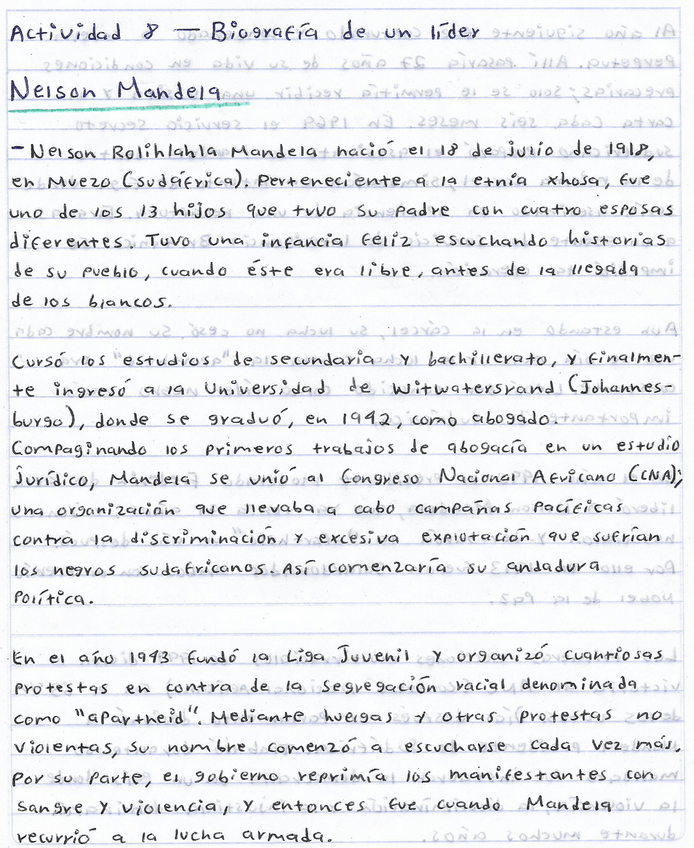 Actividad 8 — Biografía de un líder
Nelson Mandela
- Nelson Rolihlahla Mandela nació el 18 de julio de 1918,
en Mvezo (Sudáfrica). Perteneciente a la etnia xhosa, fue
uno de los 13 hijos que tuvo su padre con cuatro esposas
diferentes. Tuvo una infancia feliz escuchando historias
de su pueblo, cuando éste era libre, antes de la llegada
de los blancos.
Cursó los estudios de secundaria y bachillerato, y finalmen-
te ingresó a la Universidad de Witwatersrand (Johannes-
burgo), donde se graduó, en 1942, como abogado.
Compaginando los primeros trabajos de abogacía en un estudio
jurídico, Mandela se unió al Congreso Nacional Africano (CNA);
una organización que llevaba a cabo campañas pacíficas
contra la discriminación y excesiva explotación que sufrían
los negros sudafricanos. Así comenzaría su andadura
política.
En el año 1943 fundó la Liga Juvenil y organizó cuantiosas
protestas en contra de la segregación racial denominada
como "apartheid". Mediante huelgas y otras protestas no
violentas, su nombre comenzó a escucharse cada vez más.
Por su parte, el gobierno reprimía los manifestantes con
sangre y violencia, y entonces fue cuando Mandela
recurrió a la lucha armada.